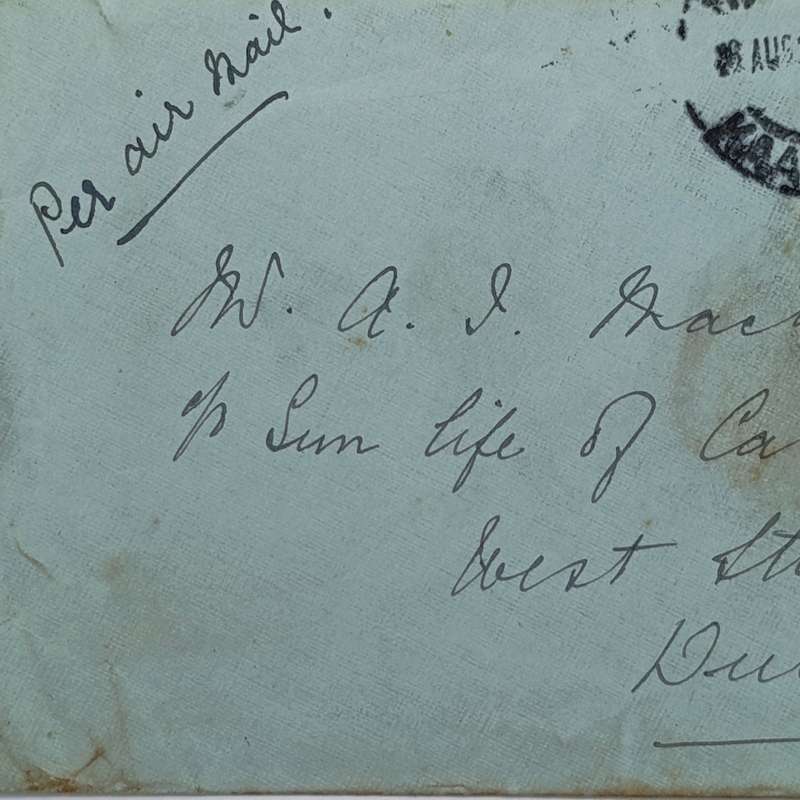 Per air Mail.
AUG
KAA
Mr. A. I. Mac
c/o Sun Life of Ca
West St
Du